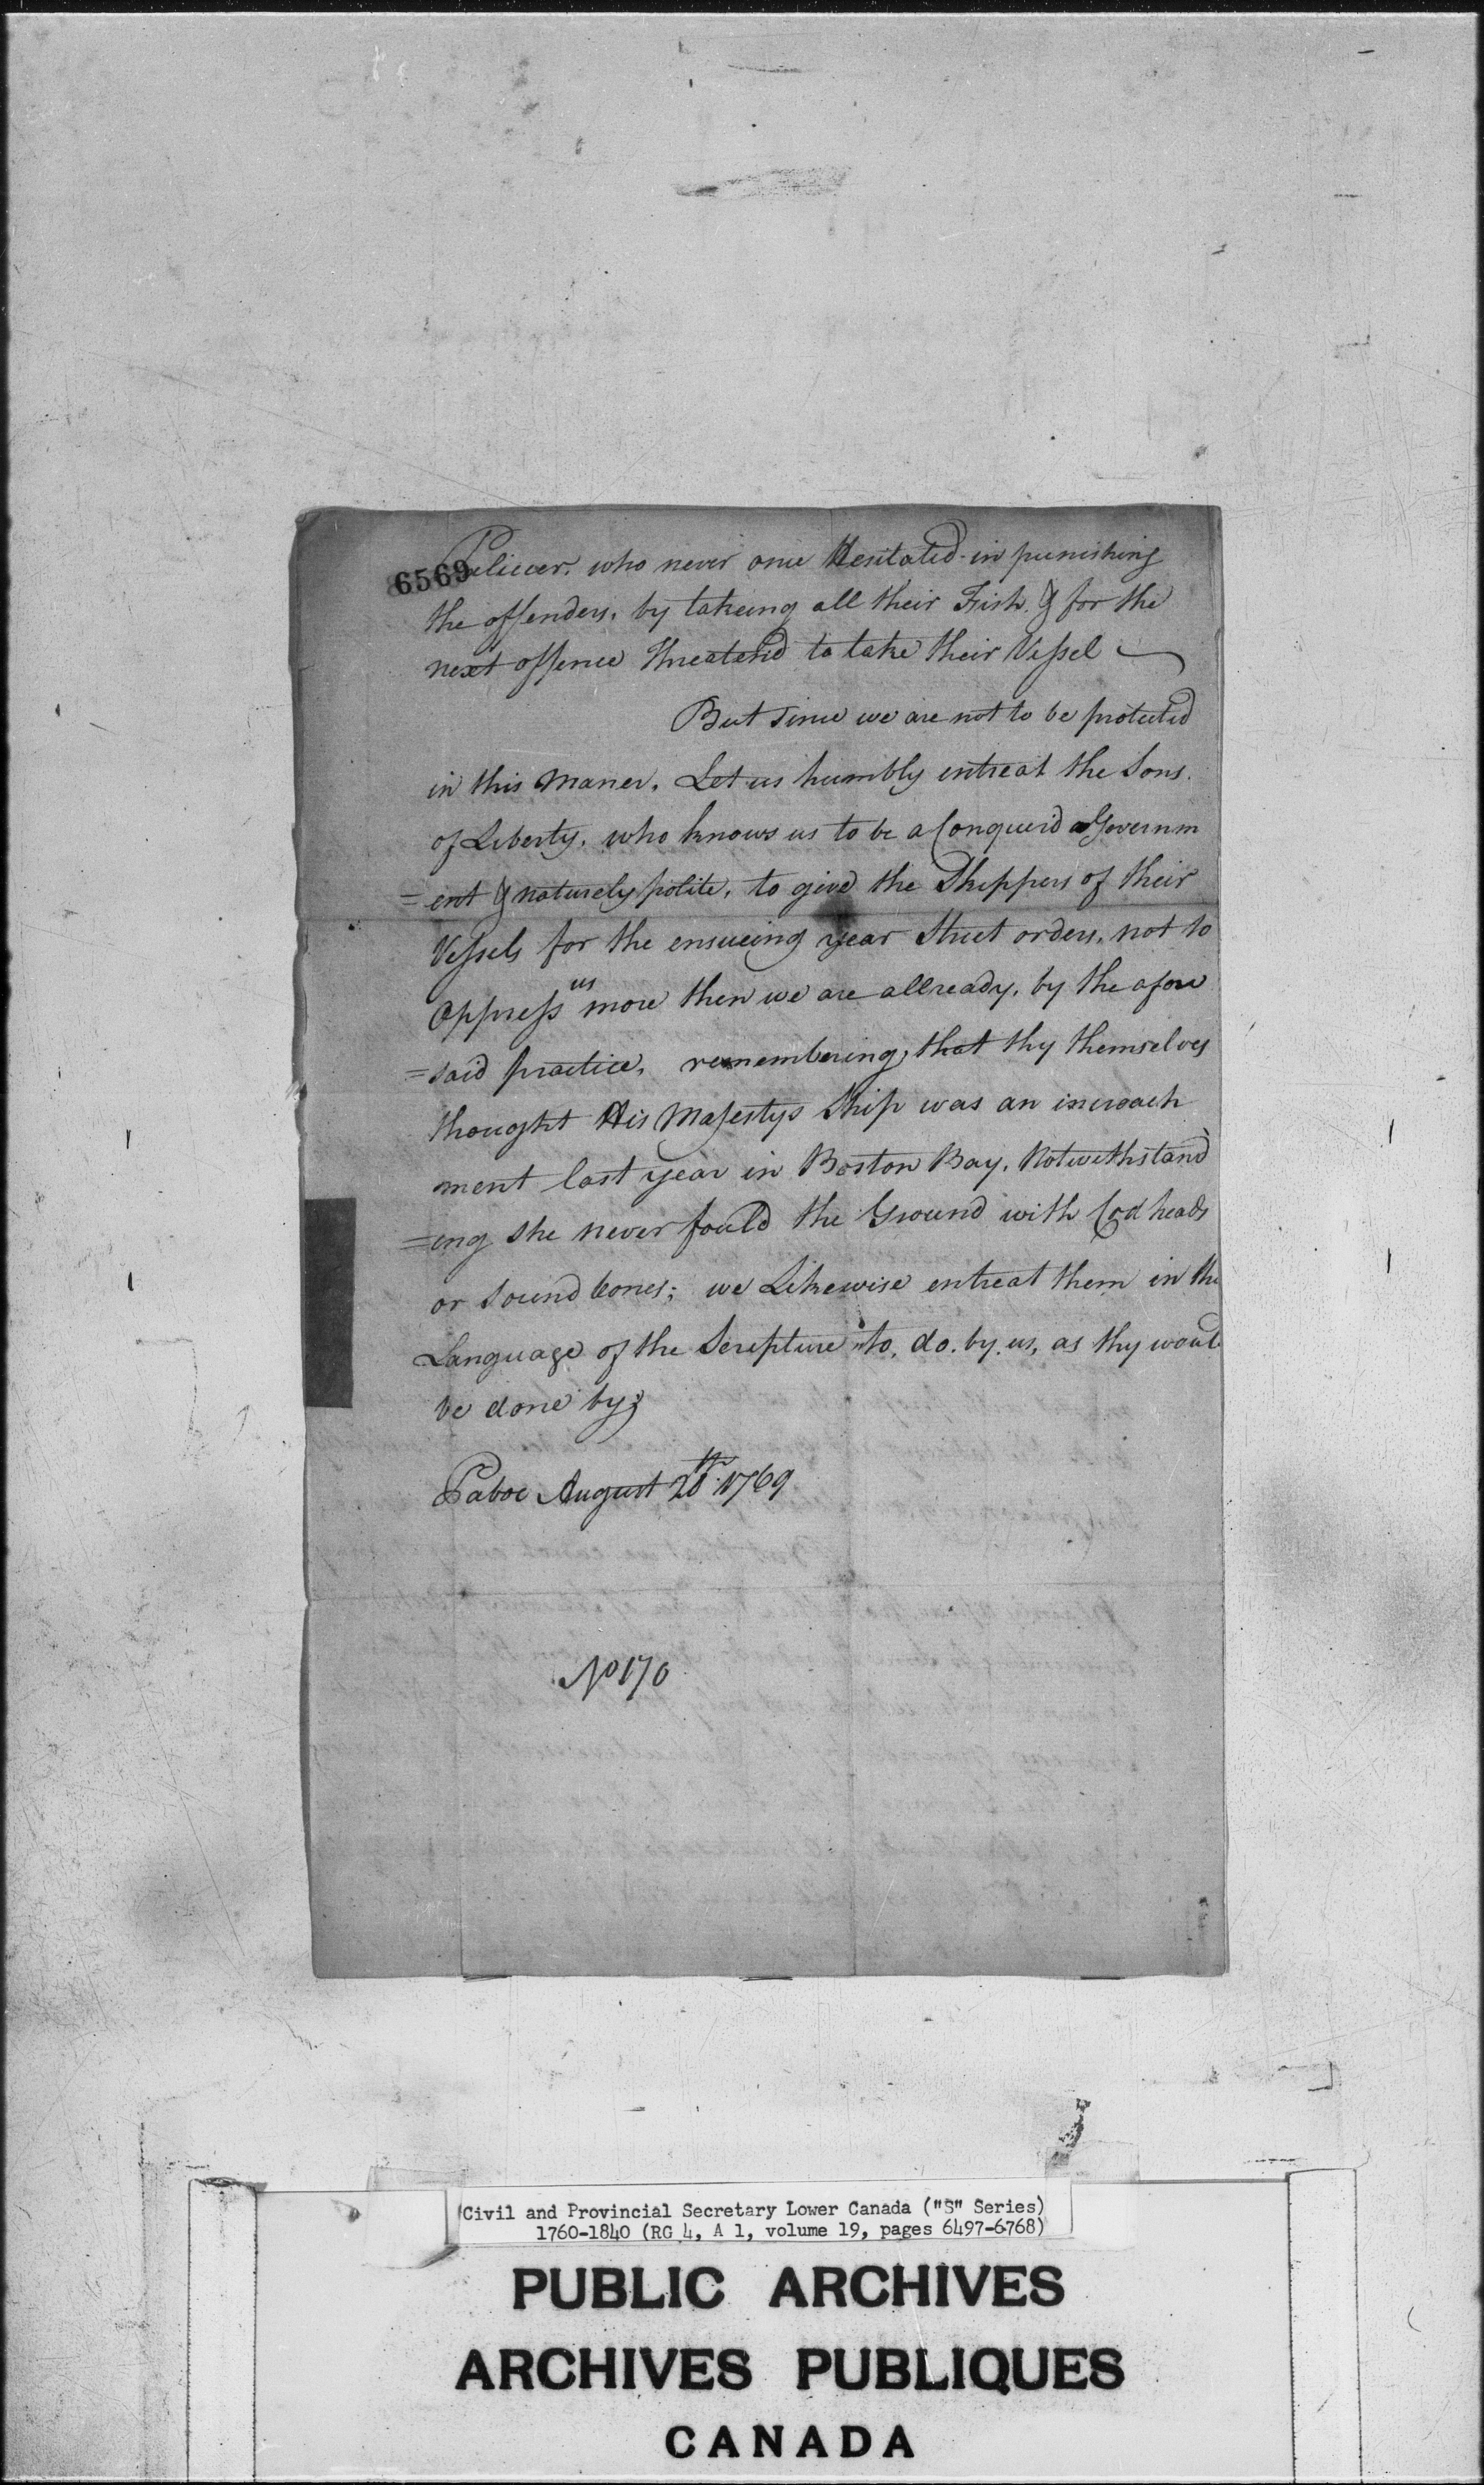 6569
Peliccer, who never once Hesitated in punishing
the offenders, by takeing all their Fish. & for the
next offence threatend to take their Vessel
But since we are not to be protected
in this maner, Let us humbly entreat the Sons
of Liberty, who knows us to be a Conquerd Governm
=ent & naturely polite, to give the Shippers of their
Vessels for the ensueing year Strict orders, not to
Oppress us more then we are allready, by the afore
=said practice, remembering, that thy themselves
thought His Majestys Ship was an incroach
ment last year in Boston Bay, Notwithstand
=ing she never fould the Ground with Cod heads
or sound bones; we Likewise entreat them in the
Language of the Scripture to, do. by. us, as thy would
be done by;
Paboc August 28th 1769
No 170
Civil and Provincial Secretary Lower Canada ("S" Series)
1760-1840 (RG 4, A 1, volume 19, pages 6497-6768)
PUBLIC ARCHIVES
ARCHIVES PUBLIQUES
CANADA